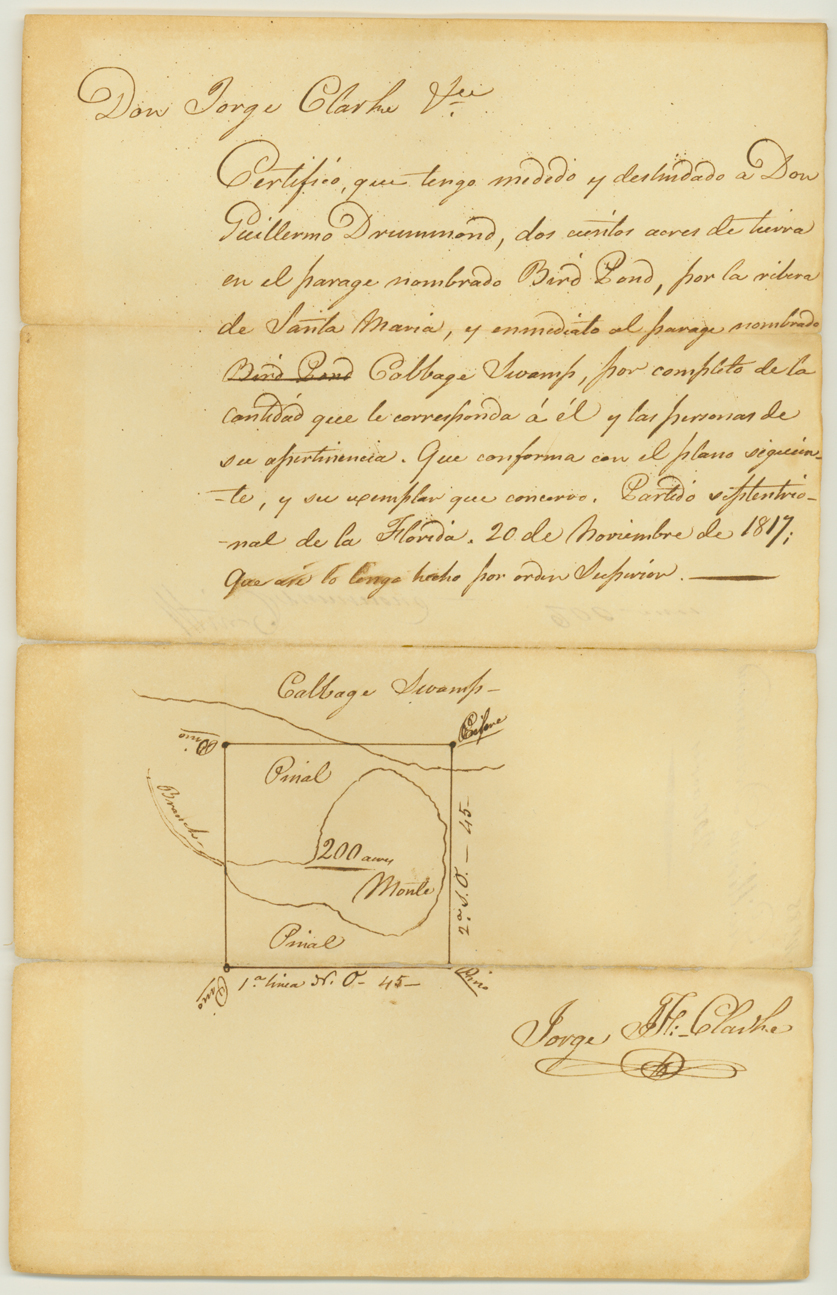 Don Jorge Clarke &ce
Certifico, que tengo medido y deslindado a Don
Guillermo Drummond, dos cientos acres de tierra
en el parage nombrado Bird Pond, por la ribera
de Santa Maria, y enmediato al parage nombrado
Bird Pond Cabbage Swamp, por completo de la
cantidad que le corresponda á él y las personas de
su apertinencia. Que conforma con el plano siguien-
-te, y su exemplar que concervo. Partido septentrio-
-nal de la Florida. 20 de Noviembre de 1817;
Que asi lo tengo hecho por orden Superior.
Cabbage Swamp
Pino
Pinal
Branch
200 acres
Monte
2.a S.O. - 45-
Pinal
Pino
1.a linea N.O - 45-
Pino
Jorge J. F. Clarke